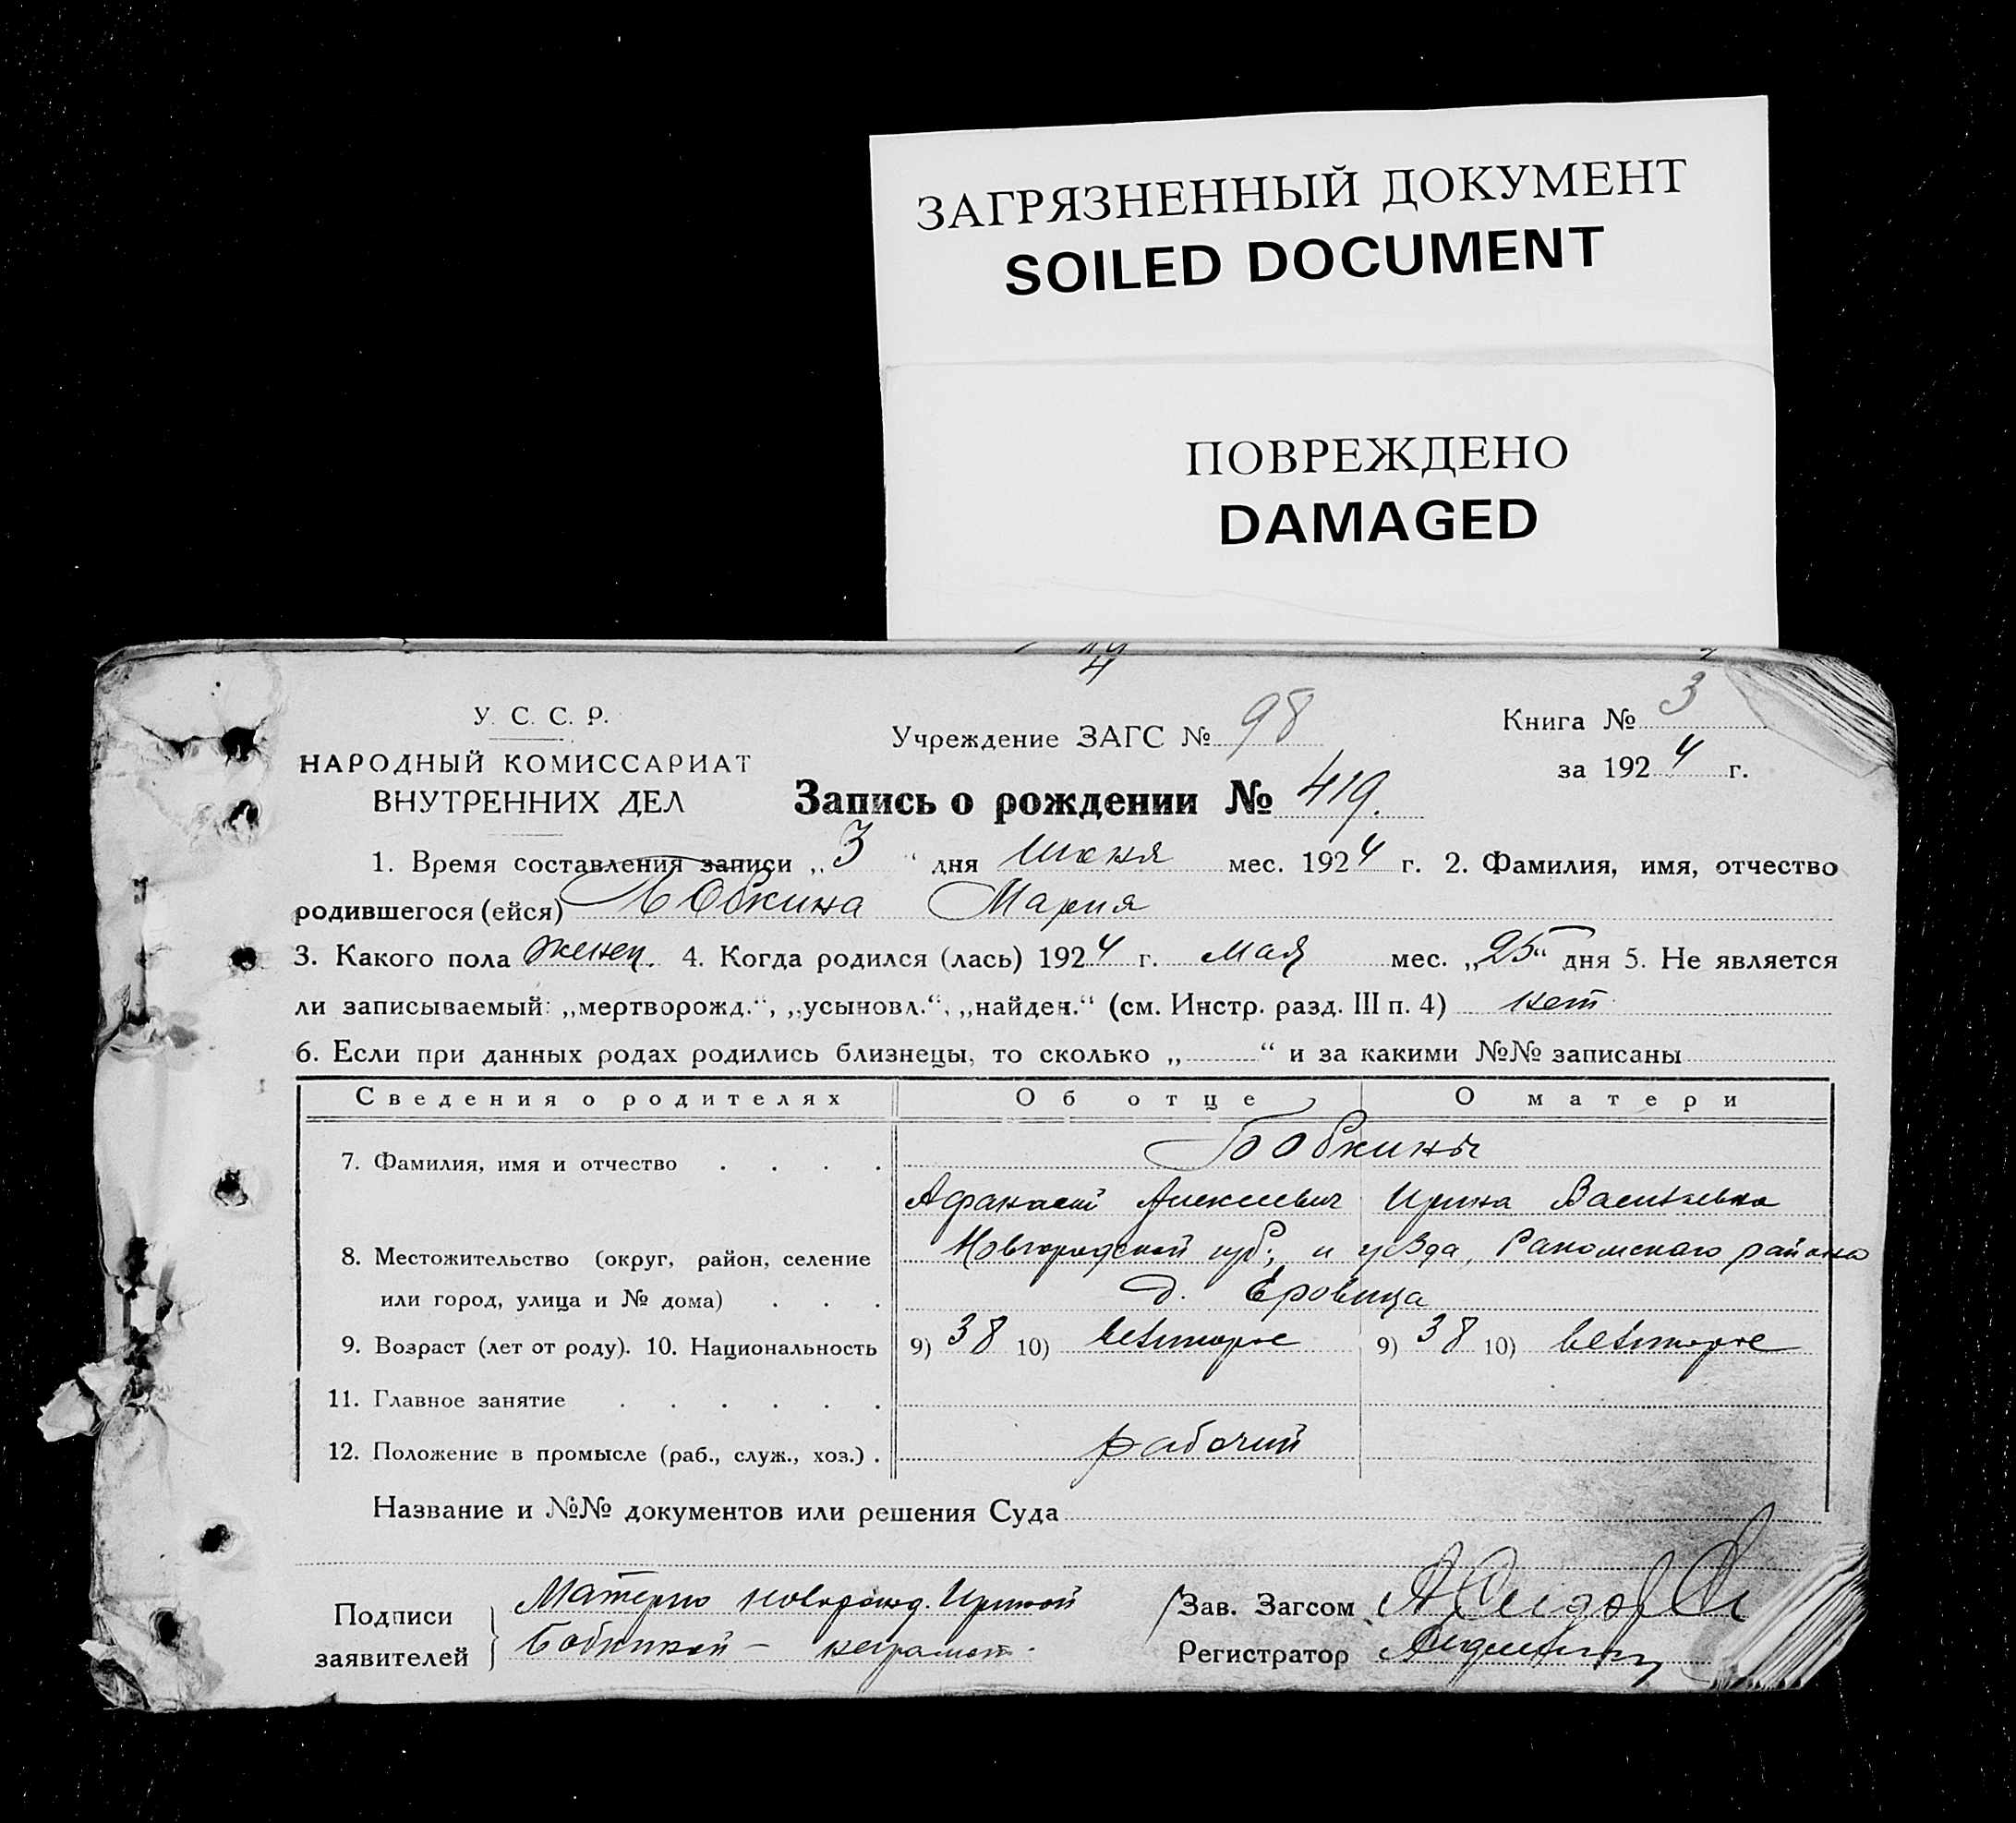 ЗАГРЯЗНЕННЫЙ ДОКУМЕНТ
SOILED DOCUMENT
ПОВРЕЖДЕНО
DAMAGED
У. С. С. Р.
НАРОДНЫЙ КОМИССАРИАТ
ВНУТРЕННИХ ДЕЛ
Учреждение ЗАГС № 98
Книга № 3
за 1924 г.
Запись о рождении № 419.
1. Время составления записи „3“ дня Июня мес. 1924 г. 2. Фамилия, имя, отчество
родившегося (ейся) Бобкина Мария
3. Какого пола женск. 4. Когда родился (лась) 1924 г. Мая мес. „25“ дня 5. Не является
ли записываемый: „мертворожд.“, „усыновл.“, „найден.“ (см. Инстр. разд. III п. 4) нет
6. Если при данных родах родились близнецы, то сколько „ “ и за какими №№ записаны
Сведения о родителях Об отце О матери
7. Фамилия, имя и отчество . . . . Бобкины
Афанасий Алексеевич Ирина Васильевна
8. Местожительство (округ, район, селение Новгородской губ., и уезда, Ракомскаго района
или город, улица и № дома) . . . д. Еровица
9. Возраст (лет от роду). 10. Национальность 9) 38 10) 9) 38 10)
11. Главное занятие . . . . . .
12. Положение в промысле (раб., служ., хоз.) . рабочий
Название и №№ документов или решения Суда
Подписи заявителей Матерью новорожд. Ириной
Бобкиной — неграмот.
Зав. Загсом
Регистратор